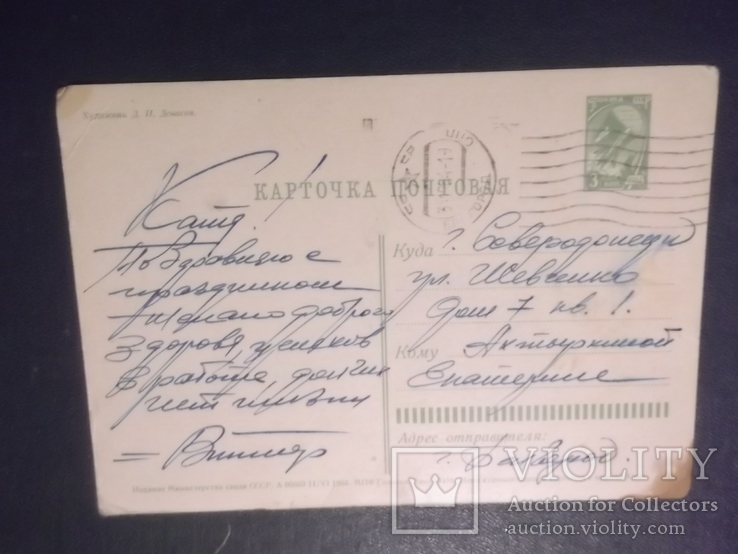 Художник Д. П.
КАРТОЧКА ПОЧТОВАЯ
3
Катя!
Поздравляю с
праздником
Желаю доброго
здоровя, успехов
в работе, долгих
лет жизни
Куда г. Северодонецк
ул. Шевченко
дом 7 кв. 1.
Кому Ахтыркиной
Екатерине
Адрес отправителя:
г.
Издание Министерства связи СССР.
VIOLITY
Auction for Collectors
auction.violity.com